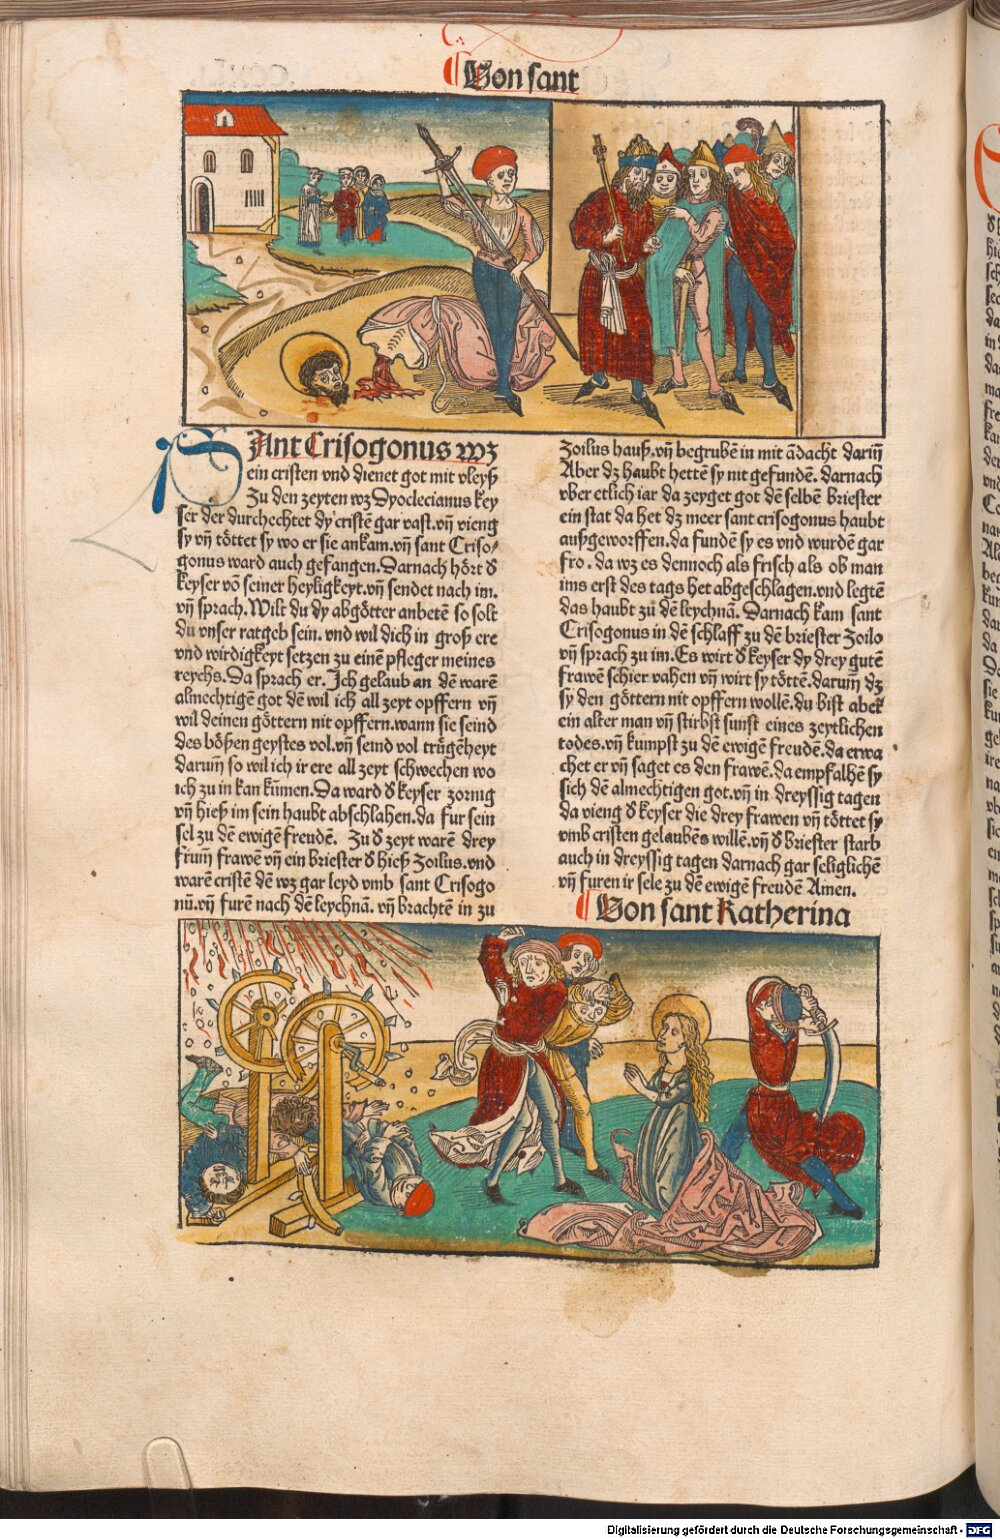 Von sant
SAnt Crisogonus wz
ein cristen vnd dienet got mit vleyß
Zu den zeyten wz Dyoclecianus key
ser der durchechtet dy cristē gar vast. vn̄ vieng
sy vn̄ töttet sy wo er sie ankam. vn̄ sant Criso⸗
gonus ward auch gefangen. Darnach hört d̾
keyser vō seiner heyligkeyt. vn̄ sendet nach im.
vn̄ sprach. Wilt du dy abgötter anbetē so solt
du vnser ratgeb sein. vnd wil dich in groß ere
vnd wirdigkeyt setzen zu einē pfleger meines
reychs. Da sprach er. Ich gelaub an dē warē
almechtigē got dē wil ich all zeyt opffern vn̄
wil deinen göttern nit opffern. wann sie seind
des bößen geystes vol. vn̄ seind vol trügēheyt
darum̄ so wil ich ir ere all zeyt schwechen wo
ich zu in kan kūmen. Da ward d̾ keyser zornig
vn̄ hieß im sein haubt abschlahen. da fur sein
sel zu dē ewigē freudē. Zu d̾ zeyt warē drey
frum̄ frawē vn̄ ein briester d̾ hieß Zoilus. vnd
warē cristē dē wz gar leyd vmb sant Crisogo
nū. vn̄ furē nach dē leychnā. vn̄ brachtē in zu
Zoilus hauß. vn̄ begrubē in mit ādacht darin̄
Aber dz haubt hettē sy nit gefundē. darnach
vber etlich iar da zeyget got dē selbē briester
ein stat da het dz meer sant crisogonus haubt
außgeworffen. da fundē sy es vnd wurdē gar
fro. da wz es dennoch als frisch als ob man
ims erst des tags het abgeschlagen. vnd legtē
das haubt zu dē leychnā. Darnach kam sant
Crisogonus in dē schlaff zu dē briester Zoilo
vn̄ sprach zu im. Es wirt d̾ keyser dy drey gutē
frawē schier vahen vn̄ wirt sy töttē. darum̄ dz
sy den göttern nit opffern wollē. du bist aber
ein alter man vn̄ stirbst sunst eines zeytlichen
todes. vn̄ kumpst zu dē ewigē freudē. da erwa
chet er vn̄ saget es den frawē. da empfalhē sy
sich dē almechtigen got. vn̄ in dreyssig tagen
da vieng d̾ keyser die drey frawen vn̄ töttet sy
vmb cristen gelaubēs willē. vn̄ d̾ briester starb
auch in dreyssig tagen darnach gar seliglichē
vn̄ furen ir sele zu dē ewigē freudē Amen.
Von sant Katherina
Digitalisierung gefördert durch die Deutsche Forschungsgemeinschaft - DFG